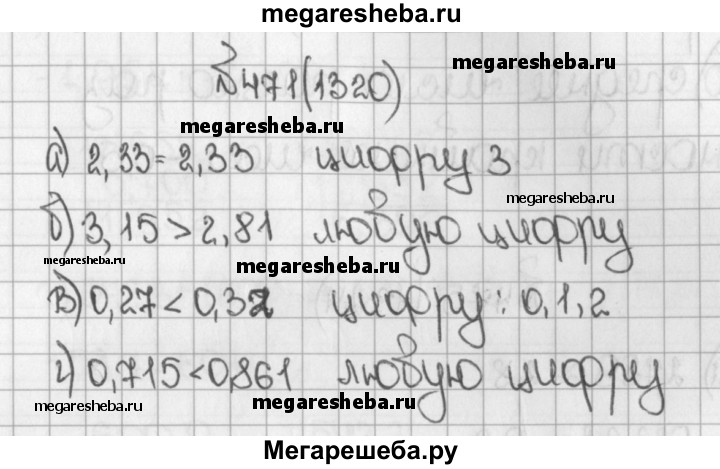 megaresheba.ru
№471(1320) megaresheba.ru
megaresheba.ru
а) 2,33=2,33 цифру 3
megaresheba.ru
б) 3,15>2,81 любую цифру
megaresheba.ru megaresheba.ru
в) 0,27<0,32 цифру: 0,1,2
г) 0,715<0,861 любую цифру
megaresheba.ru megaresheba.ru
Мегарешеба.ру